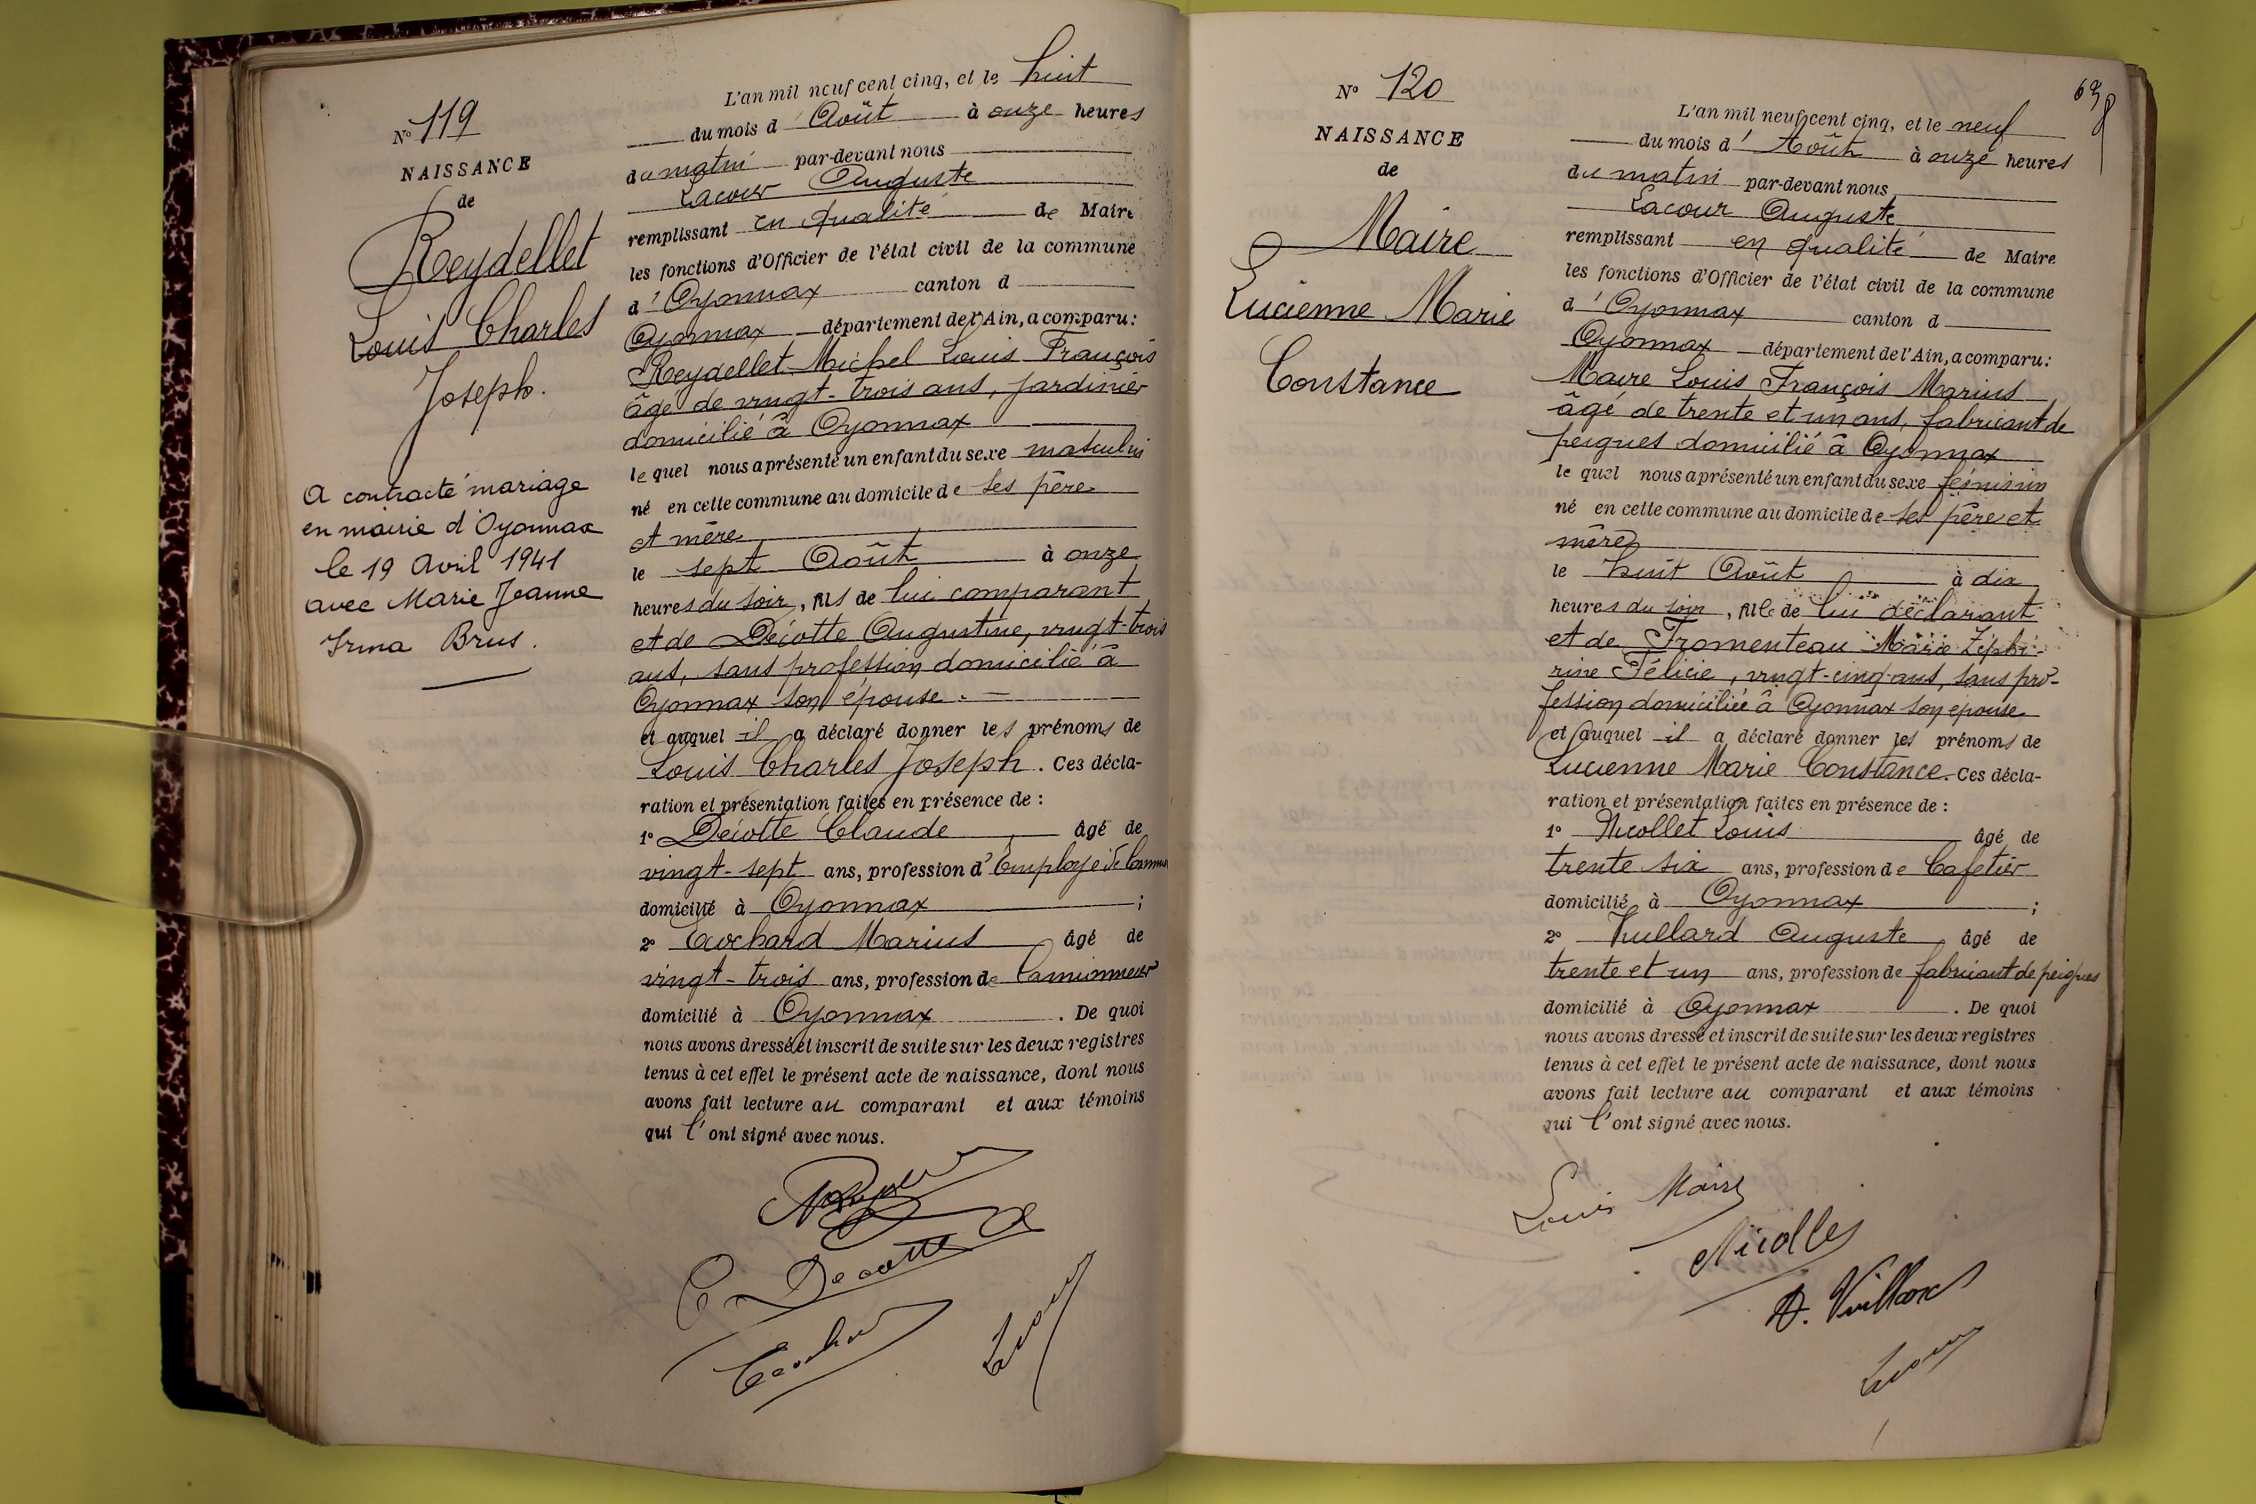 N° 119
NAISSANCE
de
Reydellet
Louis Charles
Joseph.
A contracté mariage
en mairie d'Oyonnax
le 19 Avril 1941
avec Marie Jeanne
Irma Brus.
L'an mil neuf cent cinq, et le huit
du mois d'Août à onze heures
du matin par-devant nous
Lacour Auguste
remplissant en qualité de Maire
les fonctions d'Officier de l'état civil de la commune
d'Oyonnax canton d
Oyonnax département de l'Ain, a comparu:
Reydellet Michel Louis François
âgé de vingt-trois ans, jardinier
domicilié à Oyonnax
le quel nous a présenté un enfant du sexe masculin
né en cette commune au domicile de ses père
et mère
le sept Août à onze
heures du soir, fils de lui comparant
et de Décotte Augustine, vingt-trois
ans, sans profession, domicilié à
Oyonnax son épouse.
et auquel il a déclaré donner les prénoms de
Louis Charles Joseph. Ces décla-
ration et présentation faites en présence de:
1° Décotte Claude âgé de
vingt-sept ans, profession d'Employé de
domicilié à Oyonnax;
2° Cochard Marius âgé de
vingt-trois ans, profession de Camionneur
domicilié à Oyonnax. De quoi
nous avons dressé et inscrit de suite sur les deux registres
tenus à cet effet le présent acte de naissance, dont nous
avons fait lecture au comparant et aux témoins
qui l'ont signé avec nous.
C. Decotte
N° 120
NAISSANCE
de
Maire
Lucienne Marie
Constance
L'an mil neuf cent cinq, et le neuf
du mois d'Août à onze heures
du matin par-devant nous
Lacour Auguste
remplissant en qualité de Maire
les fonctions d'Officier de l'état civil de la commune
d'Oyonnax canton d
Oyonnax département de l'Ain, a comparu:
Maire Louis François Marius
âgé de trente et un ans, fabricant de
peignes domicilié à Oyonnax
le quel nous a présenté un enfant du sexe féminin
né en cette commune au domicile de ses père et
mère
le huit Août à dix
heures du soir, fille de lui déclarant
et de Fromenteau Marie Zéphi-
rine Félicie, vingt-cinq ans, sans pro-
fession domiciliée à Oyonnax son épouse
et auquel il a déclaré donner les prénoms de
Lucienne Marie Constance. Ces décla-
ration et présentation faites en présence de:
1° Nicollet Louis âgé de
trente six ans, profession de Cafetier
domicilié à Oyonnax;
2° Vuillard Auguste âgé de
trente et un ans, profession de fabricant de peignes
domicilié à Oyonnax. De quoi
nous avons dressé et inscrit de suite sur les deux registres
tenus à cet effet le présent acte de naissance, dont nous
avons fait lecture au comparant et aux témoins
qui l'ont signé avec nous.
Louis Maire
A. Vuillard